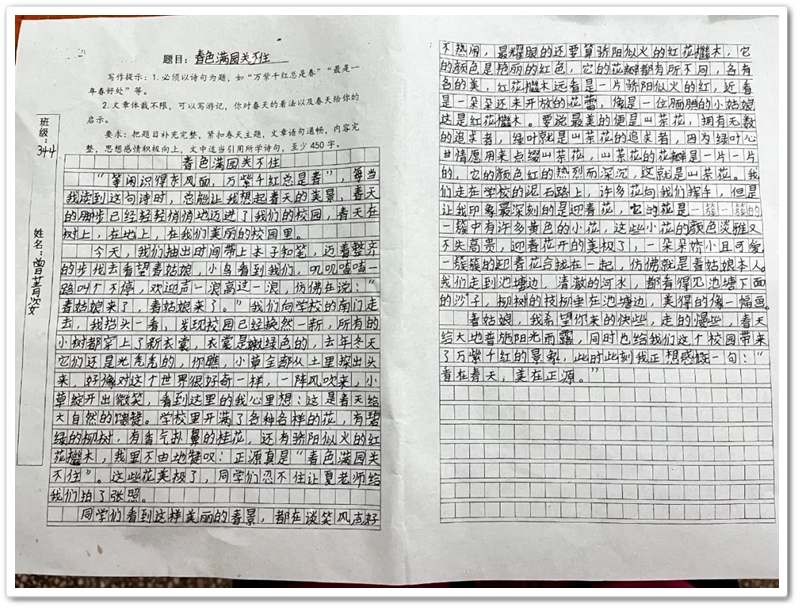 题目：春色满园关不住
写作提示：1.必须以诗句为题，如“万紫千红总是春”“最是一
年春好处”等。
2.文章体裁不限，可以写游记，你对春天的看法以及春天给你的
启示。
要求：把题目补充完整，紧扣春天主题，文章语句通畅，内容完
整，思想感情积极向上，文中适当引用所学诗句，至少450字。
班级：344
姓名：
春色满园关不住
“等闲识得东风面，万紫千红总是春”，每当
我读到这句诗时，总能让我想起春天的美景，春天
的脚步已经轻轻悄悄地迈进了我们的校园，春天在
树上，在地上，在我们美丽的校园里。
今天，我们抽出时间带上本子和笔，迈着整齐
的步伐去看望春姑娘，小鸟看到我们，叽叽喳喳一
路叫个不停，欢迎声一浪高过一浪，仿佛在说：“
春姑娘来了，春姑娘来了。”我们向学校的南门走
去，我抬头一看，发现校园已经焕然一新，所有的
小树都穿上了新衣裳，衣裳是嫩绿色的，去年冬天
它们还是光秃秃的，你瞧，小草全部从土里探出头
来，好像对这个世界很好奇一样，一阵风吹来，小
草绽开出微笑，看到这里的我心里想：这是春天给
大自然的馈赠。学校里开满了各种各样的花，有碧
绿的柳树，有香气扑鼻的桂花，还有骄阳似火的红
花檵木，我里不由地赞叹：正源真是“春色满园关
不住”。这些花美极了，同学们忍不住让夏老师给
我们拍了张照。
同学们看到这样美丽的春景，都在谈笑风声好
不热闹，最耀眼的还要算骄阳似火的红花檵木，它
的颜色是艳丽的红色，它的花瓣都有所不同，各有
各的美，红花檵木远看是一片骄阳似火的红，近看
是一朵朵还未开放的花蕾，像是一位腼腆的小姑娘
这是红花檵木。要说最美的便是山茶花，拥有无数
的追求者，绿叶就是山茶花的追求者，因为绿叶心
甘情愿用来点缀山茶花，山茶花的花瓣是一片一片
的，它的颜色红的热烈而深沉，这就是山茶花。我
们走在学校的泥石路上，许多花向我们挥手，但是
让我印象最深刻的是迎春花，它的花是一簇一簇的
一簇中有许多黄色的小花，这些小花的颜色淡雅又
不失高贵，迎春花开的美极了，一朵朵娇小且可爱
一簇簇的迎春花合拢在一起，仿佛就是春姑娘本人。
我们走到池塘边，清澈的河水，都看得见池塘下面
的沙子，柳树的枝柳垂在池塘边，美得的像一幅画。
春姑娘，我希望你来的快些，走的慢些，春天
给大地春施阳光雨露，同时也给我们这个校园带来
了万紫千红的景象，此时此刻我正想感慨一句：“
春在春天，美在正源。”